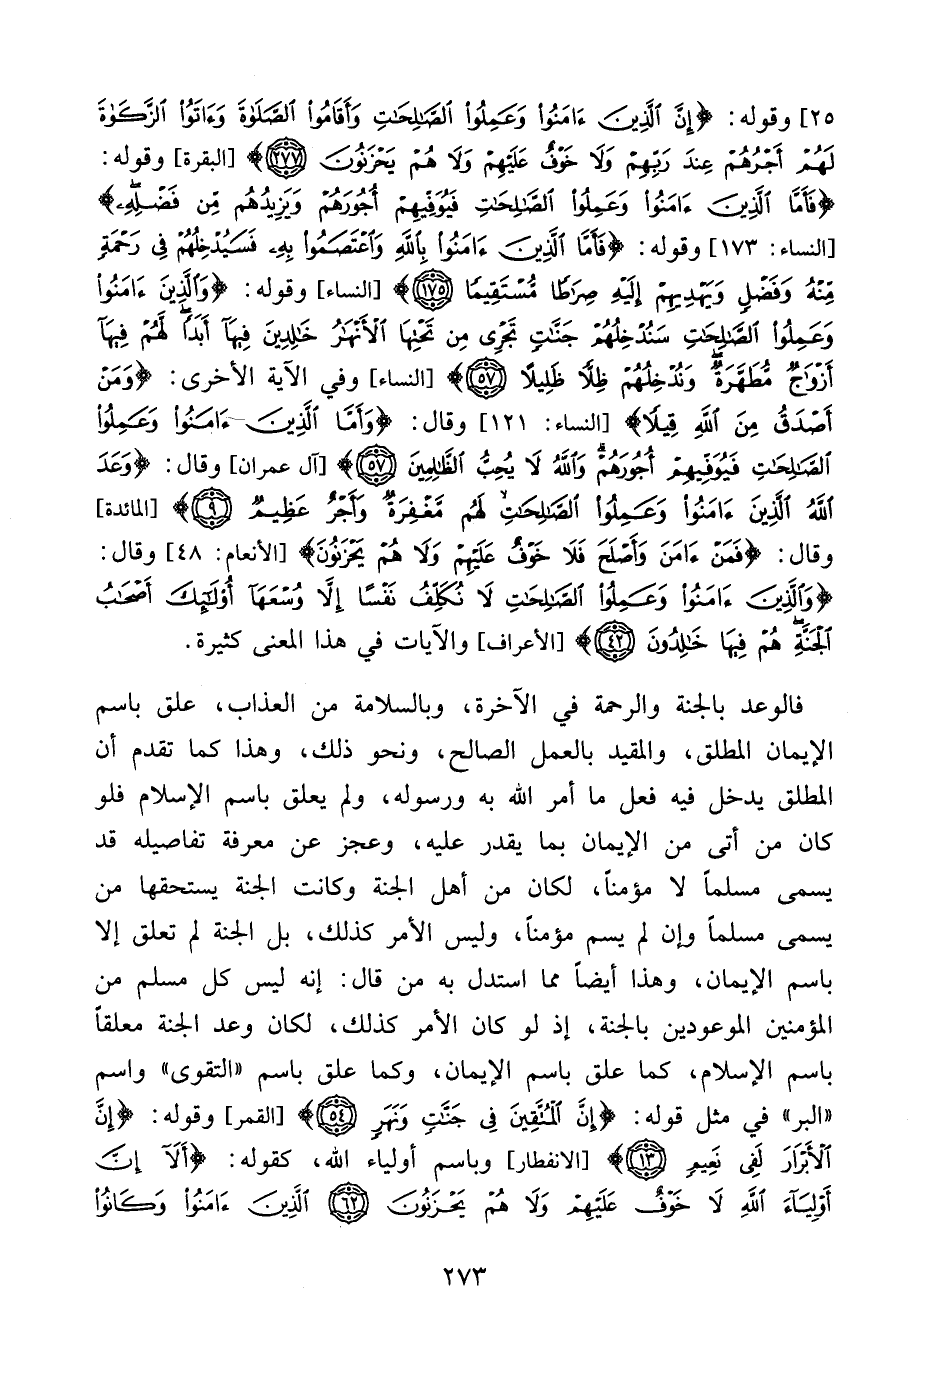 ٢٥] وقوله: ﴿إِنَّ ٱلَّذِينَ ءَامَنُوا۟ وَعَمِلُوا۟ ٱلصَّـٰلِحَـٰتِ وَأَقَامُوا۟ ٱلصَّلَوٰةَ وَءَاتَوُا۟ ٱلزَّكَوٰةَ
لَهُمْ أَجْرُهُمْ عِندَ رَبِّهِمْ وَلَا خَوْفٌ عَلَيْهِمْ وَلَا هُمْ يَحْزَنُونَ ۝٢٧٧﴾ [البقرة] وقوله:
﴿فَأَمَّا ٱلَّذِينَ ءَامَنُوا۟ وَعَمِلُوا۟ ٱلصَّـٰلِحَـٰتِ فَيُوَفِّيهِمْ أُجُورَهُمْ وَيَزِيدُهُم مِّن فَضْلِهِۦ﴾
[النساء: ١٧٣] وقوله: ﴿فَأَمَّا ٱلَّذِينَ ءَامَنُوا۟ بِٱللَّهِ وَٱعْتَصَمُوا۟ بِهِۦ فَسَيُدْخِلُهُمْ فِى رَحْمَةٍ
مِّنْهُ وَفَضْلٍ وَيَهْدِيهِمْ إِلَيْهِ صِرَٰطًا مُّسْتَقِيمًا ۝١٧٥﴾ [النساء] وقوله: ﴿وَٱلَّذِينَ ءَامَنُوا۟
وَعَمِلُوا۟ ٱلصَّـٰلِحَـٰتِ سَنُدْخِلُهُمْ جَنَّـٰتٍ تَجْرِى مِن تَحْتِهَا ٱلْأَنْهَـٰرُ خَـٰلِدِينَ فِيهَآ أَبَدًا ۖ لَّهُمْ فِيهَآ
أَزْوَٰجٌ مُّطَهَّرَةٌ ۖ وَنُدْخِلُهُمْ ظِلًّا ظَلِيلًا ۝٥٧﴾ [النساء] وفي الآية الأخرى: ﴿وَمَنْ
أَصْدَقُ مِنَ ٱللَّهِ قِيلًا﴾ [النساء: ١٢١] وقال: ﴿وَأَمَّا ٱلَّذِينَ ءَامَنُوا۟ وَعَمِلُوا۟
ٱلصَّـٰلِحَـٰتِ فَيُوَفِّيهِمْ أُجُورَهُمْ ۗ وَٱللَّهُ لَا يُحِبُّ ٱلظَّـٰلِمِينَ ۝٥٧﴾ [آل عمران] وقال: ﴿وَعَدَ
ٱللَّهُ ٱلَّذِينَ ءَامَنُوا۟ وَعَمِلُوا۟ ٱلصَّـٰلِحَـٰتِ ۙ لَهُم مَّغْفِرَةٌ وَأَجْرٌ عَظِيمٌ ۝٩﴾ [المائدة]
وقال: ﴿فَمَنْ ءَامَنَ وَأَصْلَحَ فَلَا خَوْفٌ عَلَيْهِمْ وَلَا هُمْ يَحْزَنُونَ﴾ [الأنعام: ٤٨] وقال:
﴿وَٱلَّذِينَ ءَامَنُوا۟ وَعَمِلُوا۟ ٱلصَّـٰلِحَـٰتِ لَا نُكَلِّفُ نَفْسًا إِلَّا وُسْعَهَآ أُو۟لَـٰٓئِكَ أَصْحَـٰبُ
ٱلْجَنَّةِ ۖ هُمْ فِيهَا خَـٰلِدُونَ ۝٤٢﴾ [الأعراف] والآيات في هذا المعنى كثيرة.
فالوعد بالجنة والرحمة في الآخرة، وبالسلامة من العذاب، علق باسم
الإيمان المطلق، والمقيد بالعمل الصالح، ونحو ذلك، وهذا كما تقدم أن
المطلق يدخل فيه فعل ما أمر الله به ورسوله، ولم يعلق باسم الإسلام فلو
كان من أتى من الإيمان بما يقدر عليه، وعجز عن معرفة تفاصيله قد
يسمى مسلماً لا مؤمناً، لكان من أهل الجنة وكانت الجنة يستحقها من
يسمى مسلماً وإن لم يسم مؤمناً، وليس الأمر كذلك، بل الجنة لم تعلق إلا
باسم الإيمان، وهذا أيضاً مما استدل به من قال: إنه ليس كل مسلم من
المؤمنين الموعودين بالجنة، إذ لو كان الأمر كذلك، لكان وعد الجنة معلقاً
باسم الإسلام، كما علق باسم الإيمان، وكما علق باسم «التقوى» واسم
«البر» في مثل قوله: ﴿إِنَّ ٱلْمُتَّقِينَ فِى جَنَّـٰتٍ وَنَهَرٍ ۝٥٤﴾ [القمر] وقوله: ﴿إِنَّ
ٱلْأَبْرَارَ لَفِى نَعِيمٍ ۝١٣﴾ [الانفطار] وباسم أولياء الله، كقوله: ﴿أَلَآ إِنَّ
أَوْلِيَآءَ ٱللَّهِ لَا خَوْفٌ عَلَيْهِمْ وَلَا هُمْ يَحْزَنُونَ ۝٦٢ ٱلَّذِينَ ءَامَنُوا۟ وَكَانُوا۟
٢٧٣